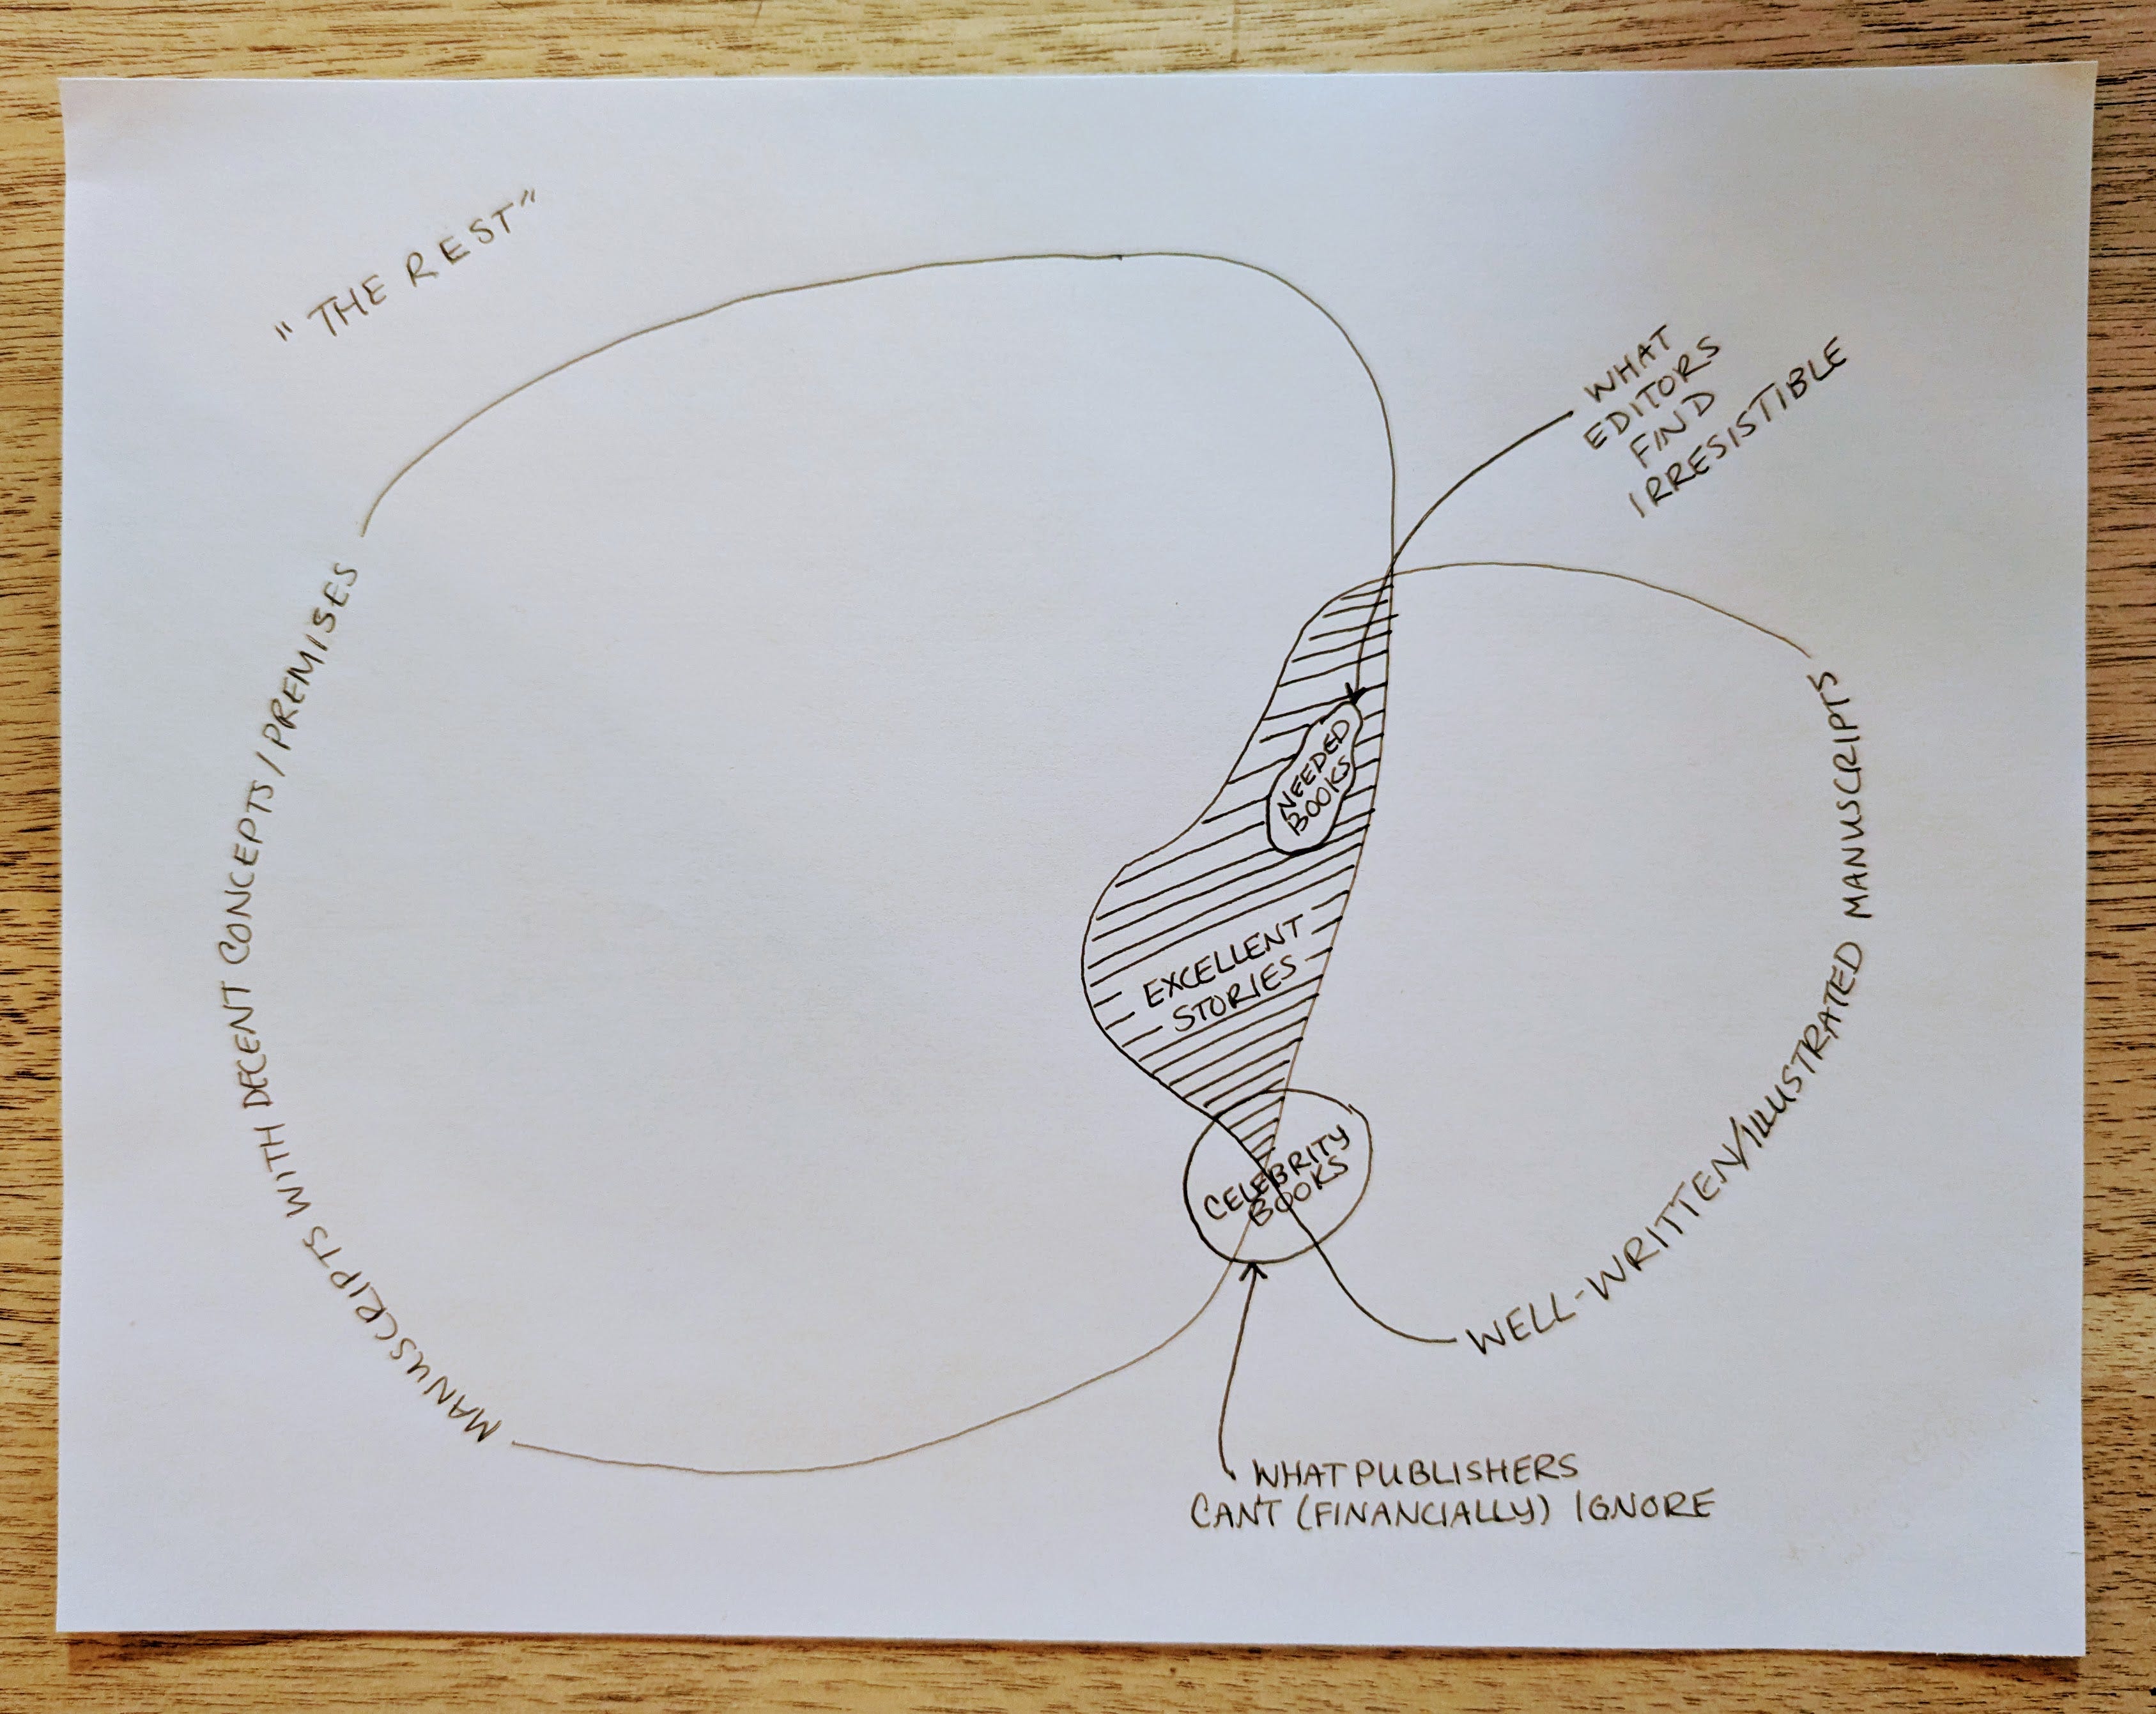 "THE REST"
WHAT
EDITORS
FIND
IRRESISTIBLE
MANUSCRIPTS WITH DECENT CONCEPTS/PREMISES
NEEDED
BOOKS
EXCELLENT
STORIES
CELEBRITY
BOOKS
WELL-WRITTEN/ILLUSTRATED MANUSCRIPTS
WHAT PUBLISHERS
CAN'T (FINANCIALLY) IGNORE